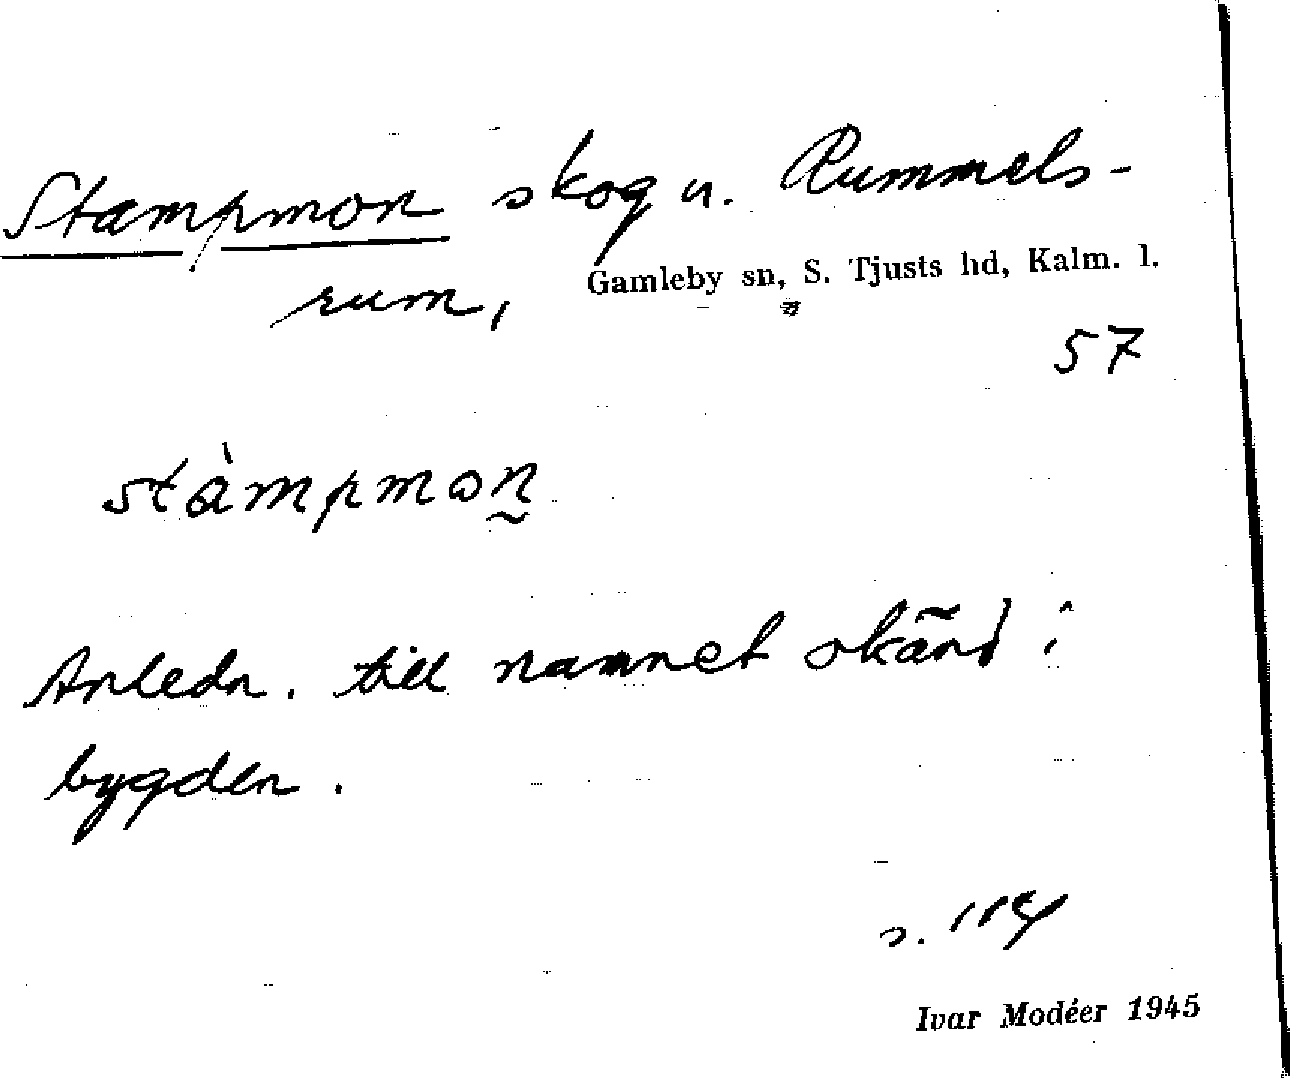 Stampmon skog u. Rummels-
rum,
Gamleby sn, S. Tjusts hd, Kalm. l.
57
stàmpmon̰
Anledn. till namnet okänd i
bygden.
s. 114
Ivar Modéer 1945